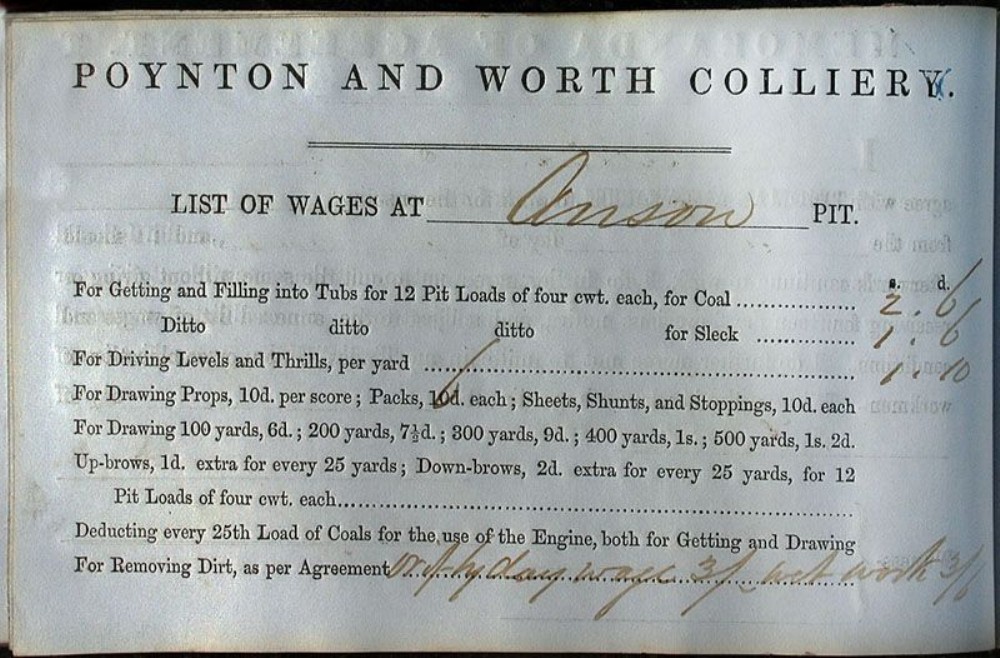 POYNTON AND WORTH COLLIERY.
LIST OF WAGES AT Anson PIT.
s. d.
For Getting and Filling into Tubs for 12 Pit Loads of four cwt. each, for Coal 2. 6
Ditto ditto ditto for Sleck 1. 6
For Driving Levels and Thrills, per yard 1. 10
For Drawing Props, 10d. per score; Packs, 10d. 6 each; Sheets, Shunts, and Stoppings, 10d. each
For Drawing 100 yards, 6d.; 200 yards, 7½d.; 300 yards, 9d.; 400 yards, 1s.; 500 yards, 1s. 2d.
Up-brows, 1d. extra for every 25 yards; Down-brows, 2d. extra for every 25 yards, for 12
Pit Loads of four cwt. each
Deducting every 25th Load of Coals for the use of the Engine, both for Getting and Drawing
For Removing Dirt, as per Agreement by day wage 3/- wet work 3/6